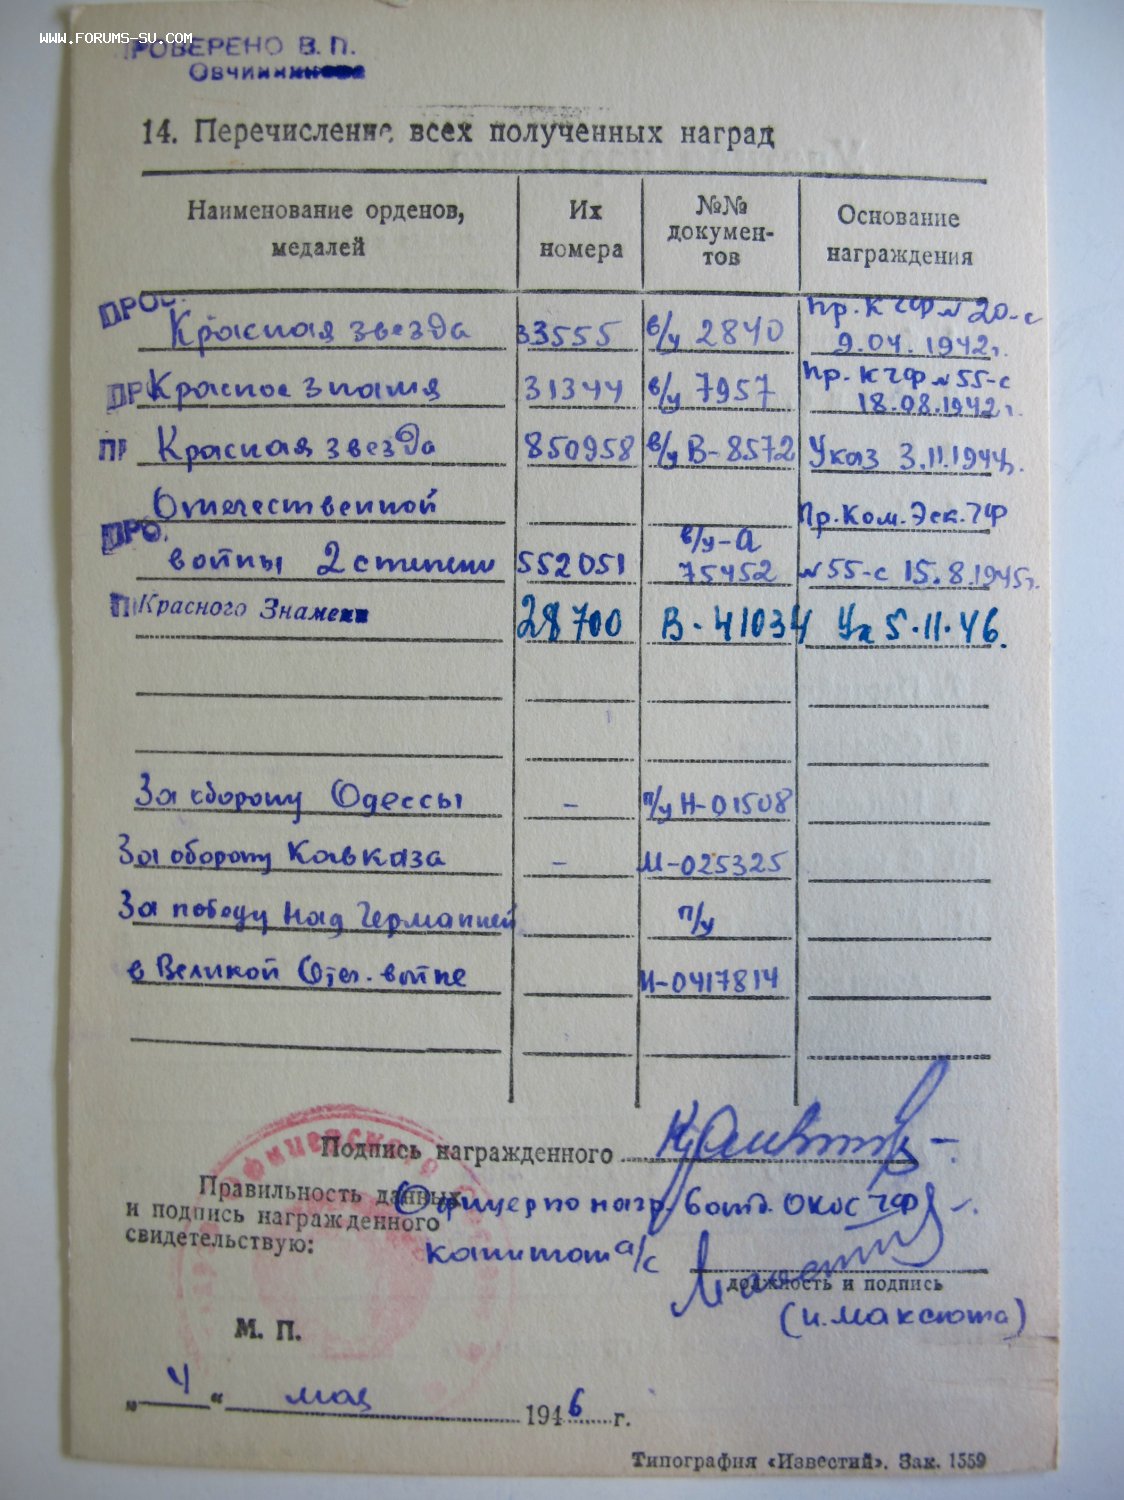 WWW.FORUMS-SU.COM
ПРОВЕРЕНО В. П.
14. Перечисление всех полученных наград
Наименование орденов, медалей
Их номера
№№ документов
Основание награждения
Красная звезда 33555 в/у 2840 Пр. КЧФ № 20-с 9.04.1942г.
Красное знамя 31344 в/у 7957 Пр. КЧФ № 55-с 18.08.1942г.
Красная звезда 850958 в/у В-8572 Указ 3.11.1944г.
Отечественной Пр. Ком. Эск. ЧФ
ПРО.
войны 2 степени 552051 в/у-А 75452 № 55-с 15.8.1945г.
Красного Знамени 28700 В-41034 Ук 5.11.46.
За оборону Одессы - п/у Н-01508
За оборону Кавказа - М-025325
За победу над Германией п/у
в Великой Отеч. войне И-0417814
Подпись награжденного
Правильность данных
и подпись награжденного
свидетельствую:
Офицер по нагр. 6 отд. ОКОС ЧФ
капитан а/с
должность и подпись
(И. Максюта)
М. П.
„ 4 “ мая 1946 г.
Типография «Известий». Зак. 1559